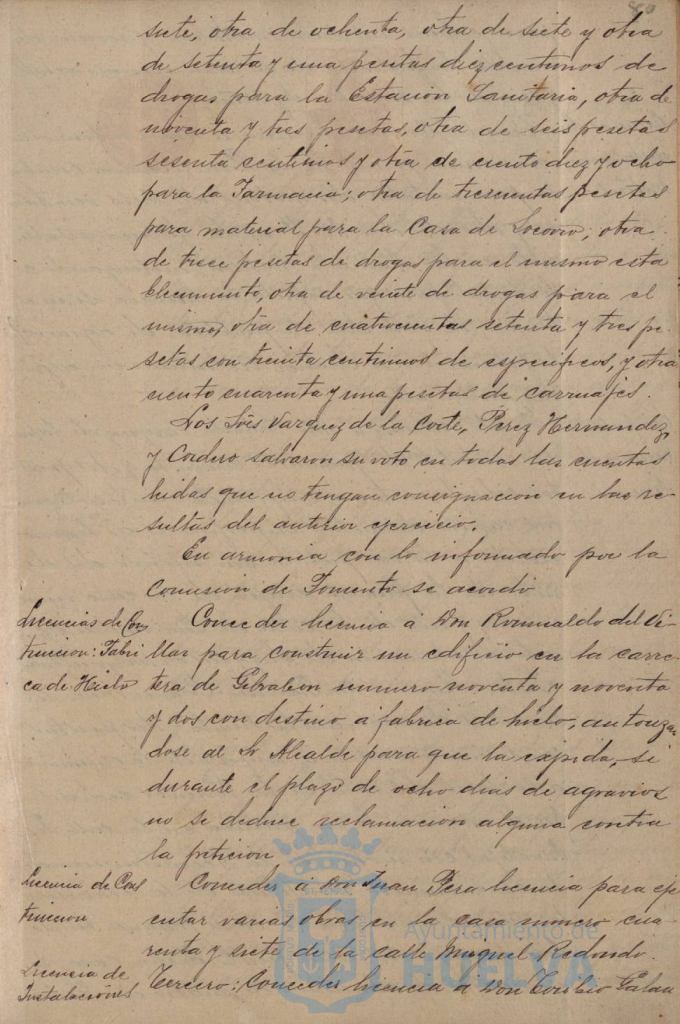 80
siete, otra de ochenta, otra de siete y otra
de setenta y una pesetas diez centimos de
drogas para la Estación Sanitaria, otra de
noventa y tres pesetas, otra de seis pesetas
sesenta centimos y otra de ciento diez y ocho
para la Farmacia; otra de trescientas pesetas
para material para la Casa de Socorro; otra
de trece pesetas de drogas para el mismo esta
blecimiento, otra de veinte de drogas para el
mismo, otra de cuatrocientas setenta y tres pe-
setas con treinta centimos de especificos, y otra
ciento cuarenta y una pesetas de carruajes.
Los Sres Vazquez de la Corte, Perez Hernandez,
y Cordero salvaron su voto en todas las cuentas
leidas que no tengan consignacion en las re-
sultas del anterior ejercicio.
En armonia con lo informado por la
Comision de Fomento se acordó
Licencias de Cons
truccion: Fabri
ca de Hielo
Conceder licencia á Don Romualdo del Vi-
llar para construir un edificio en la carre-
tera de Gibraleon numero noventa y noventa
y dos con destino á fabrica de hielo, autorizan
dose al Sr Alcalde para que la expida, si
durante el plazo de ocho dias de agravios
no se deduce reclamacion alguna contra
la peticion
Licencia de Cons
truccion
Conceder á Don Juan Pera licencia para eje
cutar varias obras en la casa numero cua
renta y siete de la calle Miguel Redondo.
Licencia de
Instalaciones
Tercero: Conceder licencia á Don Toribio Galan
Ayuntamiento de
HUELVA